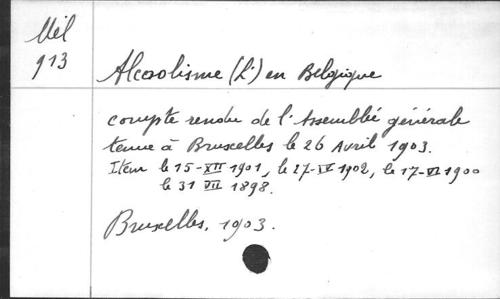 Mél
913
Alcoolisme (L') en Belgique
compte rendu de l'Assemblée générale
tenue à Bruxelles le 26 Avril 1903.
Item le 15-XII 1901, le 27-IV 1902, le 17-VI 1900
le 31 VII 1898.
Bruxelles, 1903.